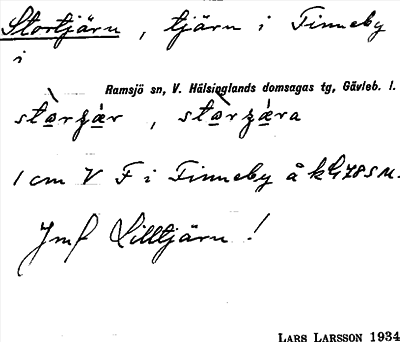 Stortjärn, tjärn i Finneby
i
Ramsjö sn, V. Hälsinglands domsagas tg, Gävleb. l.
1 cm V F i Finneby å
Jmf Lilltjärn!
LARS LARSSON 1934